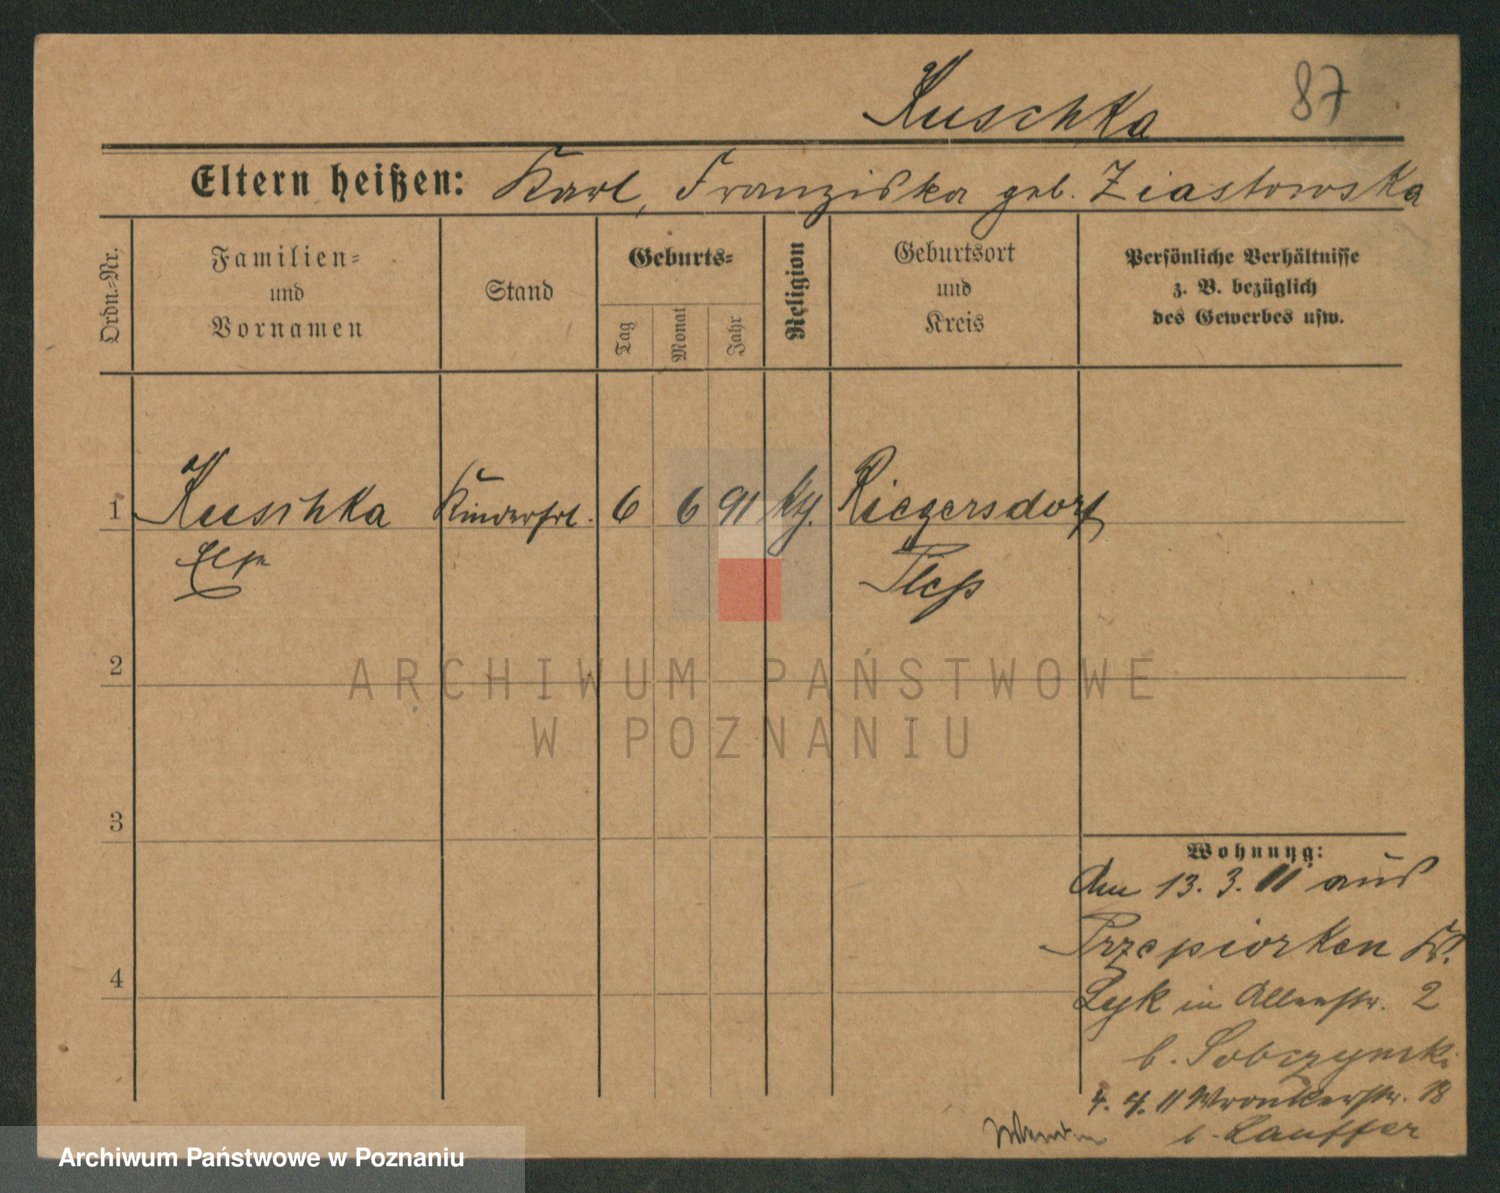 Kuschka 87
Eltern heißen: Karl, Franziska geb. Ziastowska
Ordn.-Nr.
Familien-
und
Vornamen
Stand
Geburts-
Tag
Monat
Jahr
Religion
Geburtsort
und
Kreis
Persönliche Verhältnisse
z. B. bezüglich
des Gewerbes usw.
1 Kuschka Kinderfrl. 6 6 91 kth. Riegersdorf
Pleß
2
3
4
Wohnung:
Am 13. 3. 11 aus
Przepiorken K.
Lyk in Allerstr. 2
b. Sobczynski
4. 4. 11 Wronkerstr. 18
b. Lauffer
ARCHIWUM PAŃSTWOWE
W POZNANIU
Archiwum Państwowe w Poznaniu